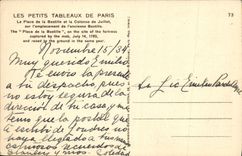 LES PETITS TABLEAUX DE PARIS
73
La Place de la Bastille et la Colonne de Juillet,
sur l'emplacement de l'ancienne Bastille.
The "Place de la Bastille", on the site of the fortress
captured by the mob, July 14, 1789,
and razed to the ground in the same year.
Noviembre 15/34
Muy querido Emilio
Te envío la presente
a tu despacho, pues
no estoy segura de la
dirección de tu casa, ya
tengo que la postal que
te escribí de Londres no
haya llegado a tus manos
cariñosos recuerdos de
Sr Lic Emilio